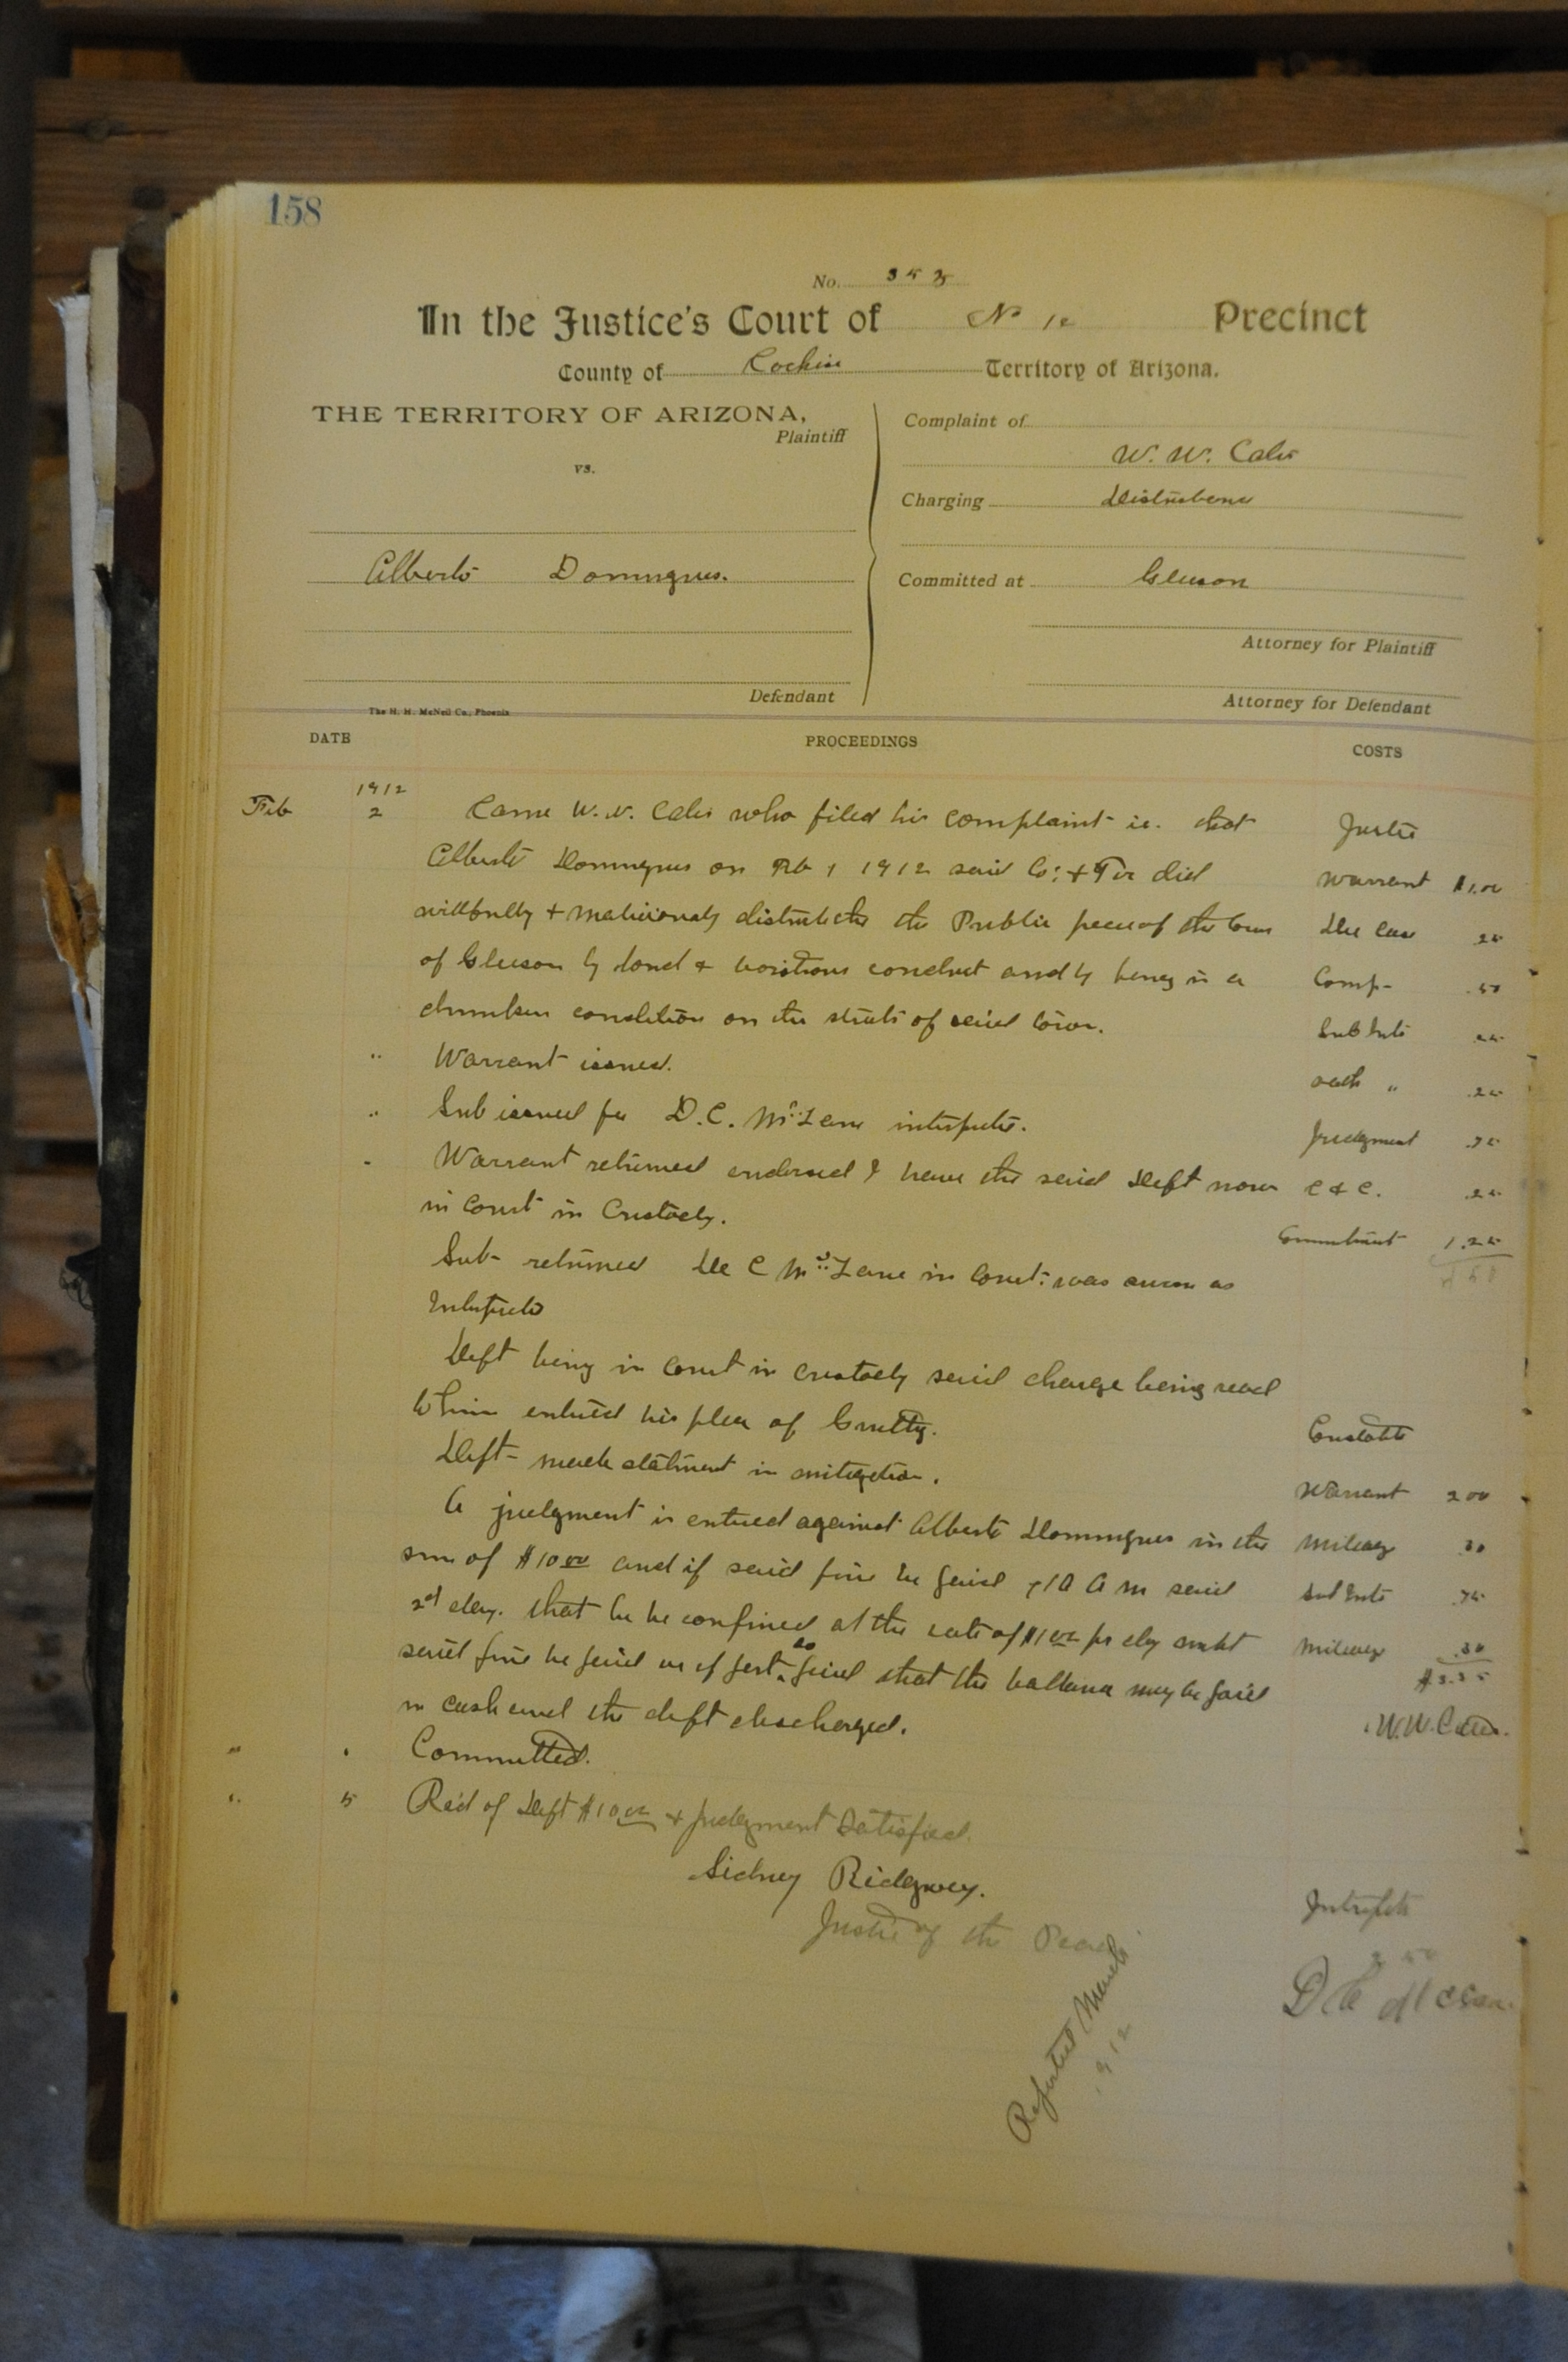 158
No. 353
In the Justice's Court of No Precinct
County of Cochise Territory of Arizona.
THE TERRITORY OF ARIZONA,
Plaintiff
vs.
Alberto Domingues.
Defendant
Complaint of
W. W. Cates
Charging Disturbance
Committed at Gleeson
Attorney for Plaintiff
Attorney for Defendant
The H. H. McNeil Co., Phoenix
DATE PROCEEDINGS COSTS
1912
Feb 2 Came W. W. Cates who filed his complaint ie. that
Alberto Domingues on Feb 1 1912 said Co: & Ter did
willfully & maliciously the Public peace of the town
of Gleeson by loud & boistrous conduct and by being in a
drunken condition on the streets of said town.
" Warrant issued.
" Sub issued for D. C. McLane interpreter.
" Warrant returned endorsed I have the said Deft now
in Court in Custody.
Sub- returned De C McLane in Court: was sworn as
Interpreter
Deft being in Court in custody said charge being read
to him entered his plea of Guilty.
Deft- made statment in mitigation.
A judgment is entered against Alberto Domingues in the
sum of $10 00 and if said fine be paid 10 A M said
2nd day. that he be confined at the rate of $1 00 pr day until
said fine be paid or if part so paid that the ballance may be paid
in cash and the deft discharged.
" " Committed.
" 5 Recd of Deft $10 00 & judgment Satisfied.
Sidney Ridgway.
Justice of the Peace
Reported March
1912
Justice
Warrant $1.00
Doc Case .25
Comp- .50
Sub Inte .25
oath " .25
Judgment .75
C & C. .25
Commitment 1.25
4 50
Constable
Warrant 2 00
Mileage .30
Sub Inte .75
Mileage .30
$3.35
W. W. Cates.
Interpreter
2 50
D C McLane